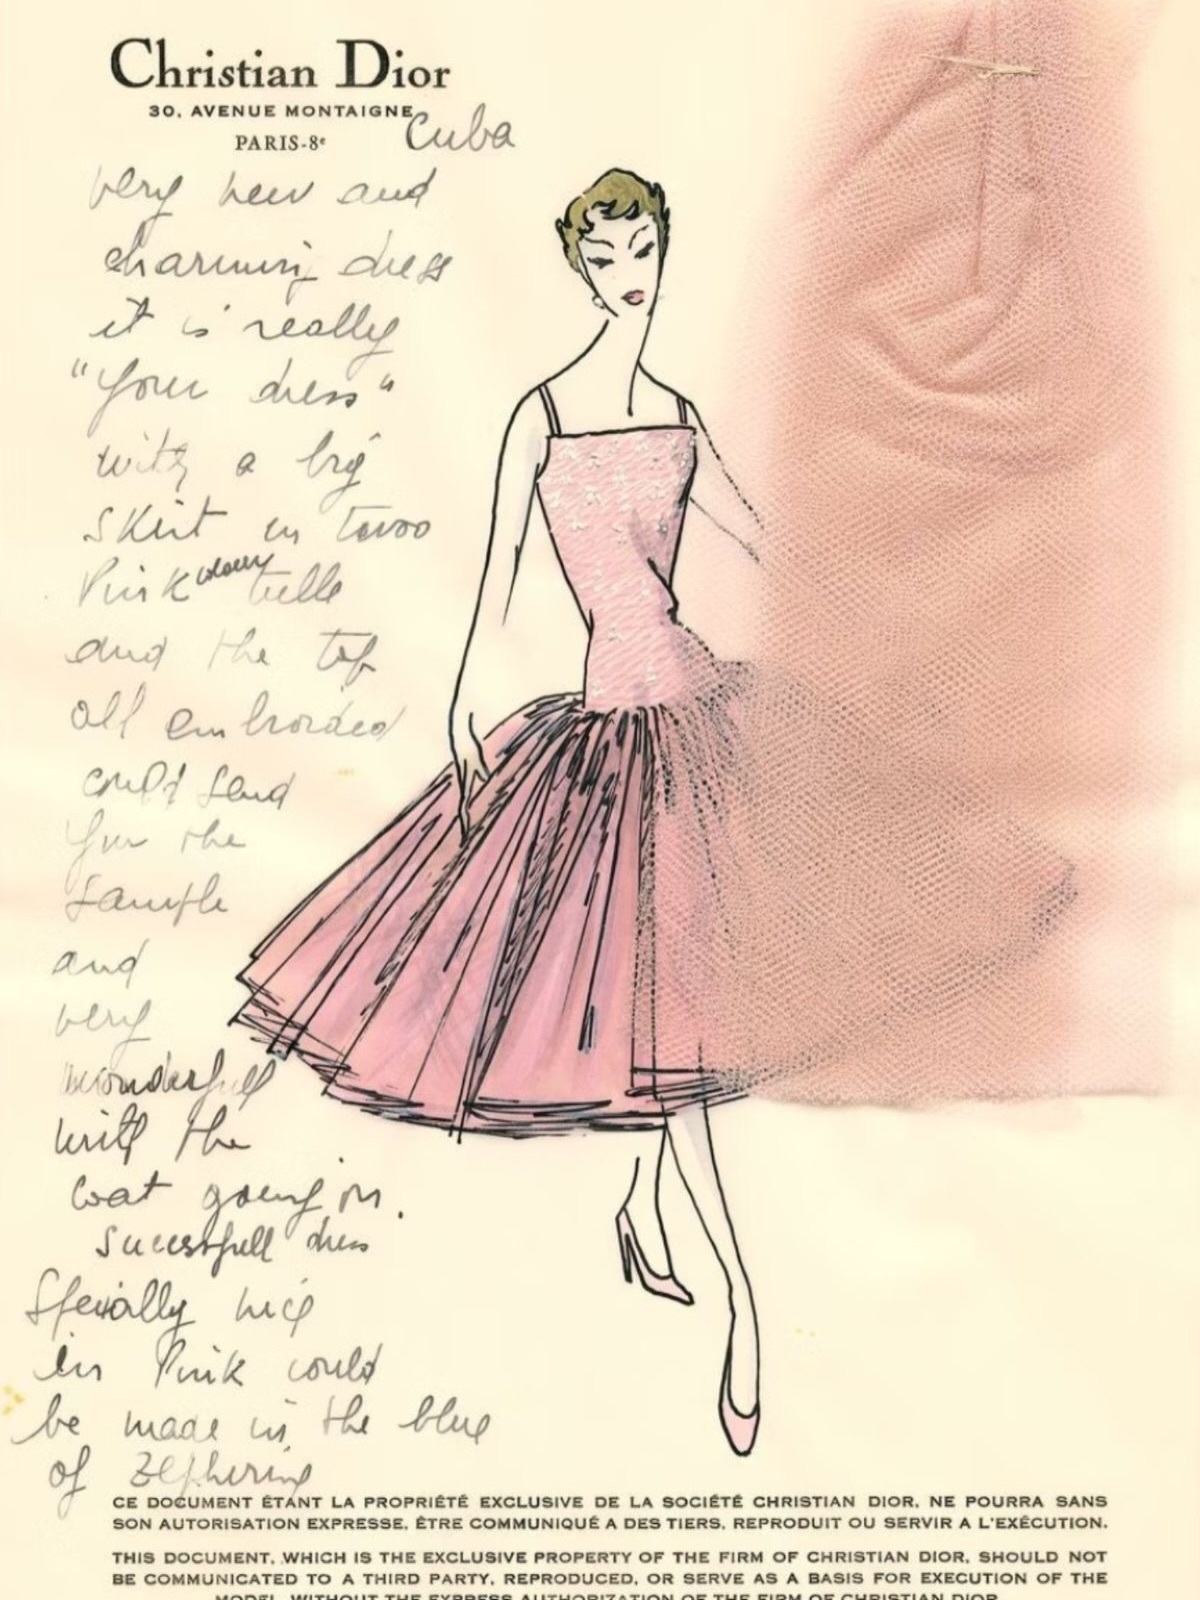 Christian Dior
30, AVENUE MONTAIGNE
PARIS-8e
Cuba
very new and
charming dress
it is really
"your dress"
with a big
skirt in twoo
Pink colour tulle
and the top
all embroided
could send
you the
sample
and
very
wonderfull
with the
coat going on.
sucessfull dress
specially nice
in Pink could
be made in the blue
of Zephirine
CE DOCUMENT ÉTANT LA PROPRIÉTÉ EXCLUSIVE DE LA SOCIÉTÉ CHRISTIAN DIOR, NE POURRA SANS
SON AUTORISATION EXPRESSE, ÊTRE COMMUNIQUÉ A DES TIERS, REPRODUIT OU SERVIR A L'EXÉCUTION.
THIS DOCUMENT, WHICH IS THE EXCLUSIVE PROPERTY OF THE FIRM OF CHRISTIAN DIOR, SHOULD NOT
BE COMMUNICATED TO A THIRD PARTY, REPRODUCED, OR SERVE AS A BASIS FOR EXECUTION OF THE
MODEL, WITHOUT THE EXPRESS AUTHORIZATION OF THE FIRM OF CHRISTIAN DIOR